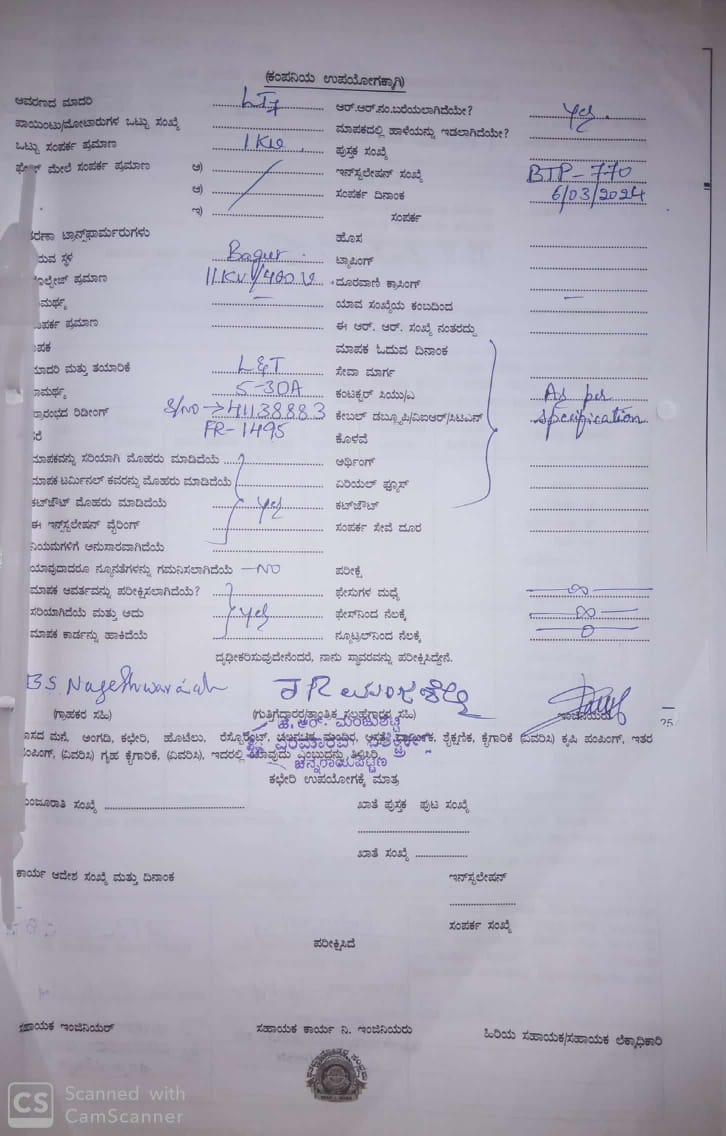 (ಕಂಪನಿಯ ಉಪಯೋಗಕ್ಕಾಗಿ)
ಆವರಣದ ಮಾದರಿ LT7 ಆರ್.ಆರ್.ನಂ.ಬರೆಯಲಾಗಿದೆಯೇ? Yes.
ಪಾಯಿಂಟು/ಮೋಟಾರುಗಳ ಒಟ್ಟು ಸಂಖ್ಯೆ ಮಾಪಕದಲ್ಲಿ ಹಾಳೆಯನ್ನು ಇಡಲಾಗಿದೆಯೇ?
ಒಟ್ಟು ಸಂಪರ್ಕ ಪ್ರಮಾಣ 1 KW. ಪುಸ್ತಕ ಸಂಖ್ಯೆ
ಮೇಲೆ ಸಂಪರ್ಕ ಪ್ರಮಾಣ ಅ) ಇನ್‌ಸ್ಟಲೇಷನ್ ಸಂಖ್ಯೆ BTP-770
ಆ) ಸಂಪರ್ಕ ದಿನಾಂಕ 6/03/2024
ಇ) ಸಂಪರ್ಕ
ರಣಾ ಟ್ರಾನ್ಸ್‌ಫಾರ್ಮರುಗಳು ಹೊಸ
ರುವ ಸ್ಥಳ Bagur. ಟ್ಯಾಪಿಂಗ್
ಪ್ರಮಾಣ 11KV/400V ದೂರವಾಣಿ ಕ್ರಾಸಿಂಗ್
ಮರ್ಥ್ಯ — ಯಾವ ಸಂಖ್ಯೆಯ ಕಂಬದಿಂದ —
ಪರ್ಕ ಪ್ರಮಾಣ ಈ ಆರ್. ಆರ್. ಸಂಖ್ಯೆ ನಂತರದ್ದು
ಪಕ ಮಾಪಕ ಓದುವ ದಿನಾಂಕ
ಮಾದರಿ ಮತ್ತು ತಯಾರಿಕೆ L&T ಸೇವಾ ಮಾರ್ಗ
ಮರ್ಥ್ಯ 5-30A ಕಂಟಕ್ಟರ್ ಸಿಯು/ಎ As per
ಪ್ರಾರಂಭದ ರಿಡೀಂಗ್ S/NO → 41138883 ಕೇಬಲ್ ಡಬ್ಲ್ಯೂಪಿ/ವಿಐಆರ್/ಸಿಟಿಎನ್ specification
FR-1495 ಕೊಳವೆ
ಮಾಪಕವನ್ನು ಸರಿಯಾಗಿ ಮೊಹರು ಮಾಡಿದೆಯೆ ಆರ್ಥಿಂಗ್
ಮಾಪಕ ಟರ್ಮಿನಲ್ ಕವರನ್ನು ಮೊಹರು ಮಾಡಿದೆಯೆ ಏರಿಯಲ್ ಫ್ಯೂಸ್
ಕಟ್‌ಜೌಟ್ ಮೊಹರು ಮಾಡಿದೆಯೆ Yes ಕಟ್‌ಜೌಟ್
ಈ ಇನ್‌ಸ್ಟಲೇಷನ್ ವೈರಿಂಗ್ ಸಂಪರ್ಕ ಸೇವೆ ದೂರ
ನಿಯಮಗಳಿಗೆ ಅನುಸಾರವಾಗಿದೆಯೆ
ಯಾವುದಾದರೂ ನ್ಯೂನತೆಗಳನ್ನು ಗಮನಿಸಲಾಗಿದೆಯೆ —NO ಪರೀಕ್ಷೆ
ಮಾಪಕ ಆವರ್ತವನ್ನು ಪರೀಕ್ಷಿಸಲಾಗಿದೆಯೆ? ಫೇಸುಗಳ ಮಧ್ಯೆ ∞
ಸರಿಯಾಗಿದೆಯೆ ಮತ್ತು ಅದು Yes ಫೇಸ್‌ನಿಂದ ನೆಲಕ್ಕೆ ∞
ಮಾಪಕ ಕಾರ್ಡನ್ನು ಹಾಕಿದೆಯೆ ನ್ಯೂಟ್ರಲ್‌ನಿಂದ ನೆಲಕ್ಕೆ 0
ದೃಢೀಕರಿಸುವುದೇನೆಂದರೆ, ನಾನು ಸ್ಥಾವರವನ್ನು ಪರೀಕ್ಷಿಸಿದ್ದೇನೆ.
B.S. Nageshwaraiah
(ಗ್ರಾಹಕರ ಸಹಿ) (ಗುತ್ತಿಗೆದ್ದಾರರ/ತಾಂತ್ರಿಕ ಸಲಹೆಗಾರರ ಸಹಿ) ಇಂಜಿನಿಯರು
ಜೆ.ಆರ್. ಮಂಜುಶೆಟ್ಟಿ
25
ವಾಸದ ಮನೆ, ಅಂಗಡಿ, ಕಛೇರಿ, ಹೊಟೇಲು, ರೆಸ್ಟೊರೆಂಟ್, ಚಲನಚಿತ್ರ ಮಂದಿರ, ಆಸ್ಪತ್ರೆ, ಧಾರ್ಮಿಕ, ಶೈಕ್ಷಣಿಕ, ಕೈಗಾರಿಕೆ (ವಿವರಿಸಿ) ಕೃಷಿ ಪಂಪಿಂಗ್, ಇತರ
ಪಂಪಿಂಗ್, (ವಿವರಿಸಿ) ಗೃಹ ಕೈಗಾರಿಕೆ, (ವಿವರಿಸಿ), ಇದರಲ್ಲಿ ಯಾವುದು ಎಂಬುದನ್ನು ತಿಳಿಸಿರಿ.
ಚನ್ನರಾಯಪಟ್ಟಣ
ಕಛೇರಿ ಉಪಯೋಗಕ್ಕೆ ಮಾತ್ರ
ಮಂಜೂರಾತಿ ಸಂಖ್ಯೆ ಖಾತೆ ಪುಸ್ತಕ ಪುಟ ಸಂಖ್ಯೆ
ಖಾತೆ ಸಂಖ್ಯೆ
ಕಾರ್ಯ ಆದೇಶ ಸಂಖ್ಯೆ ಮತ್ತು ದಿನಾಂಕ ಇನ್‌ಸ್ಟಲೇಷನ್
ಸಂಪರ್ಕ ಸಂಖ್ಯೆ
ಪರೀಕ್ಷಿಸಿದೆ
ಸಹಾಯಕ ಇಂಜಿನಿಯರ್ ಸಹಾಯಕ ಕಾರ್ಯ ನಿ. ಇಂಜಿನಿಯರು ಹಿರಿಯ ಸಹಾಯಕ/ಸಹಾಯಕ ಲೆಕ್ಕಾಧಿಕಾರಿ
CS Scanned with
CamScanner